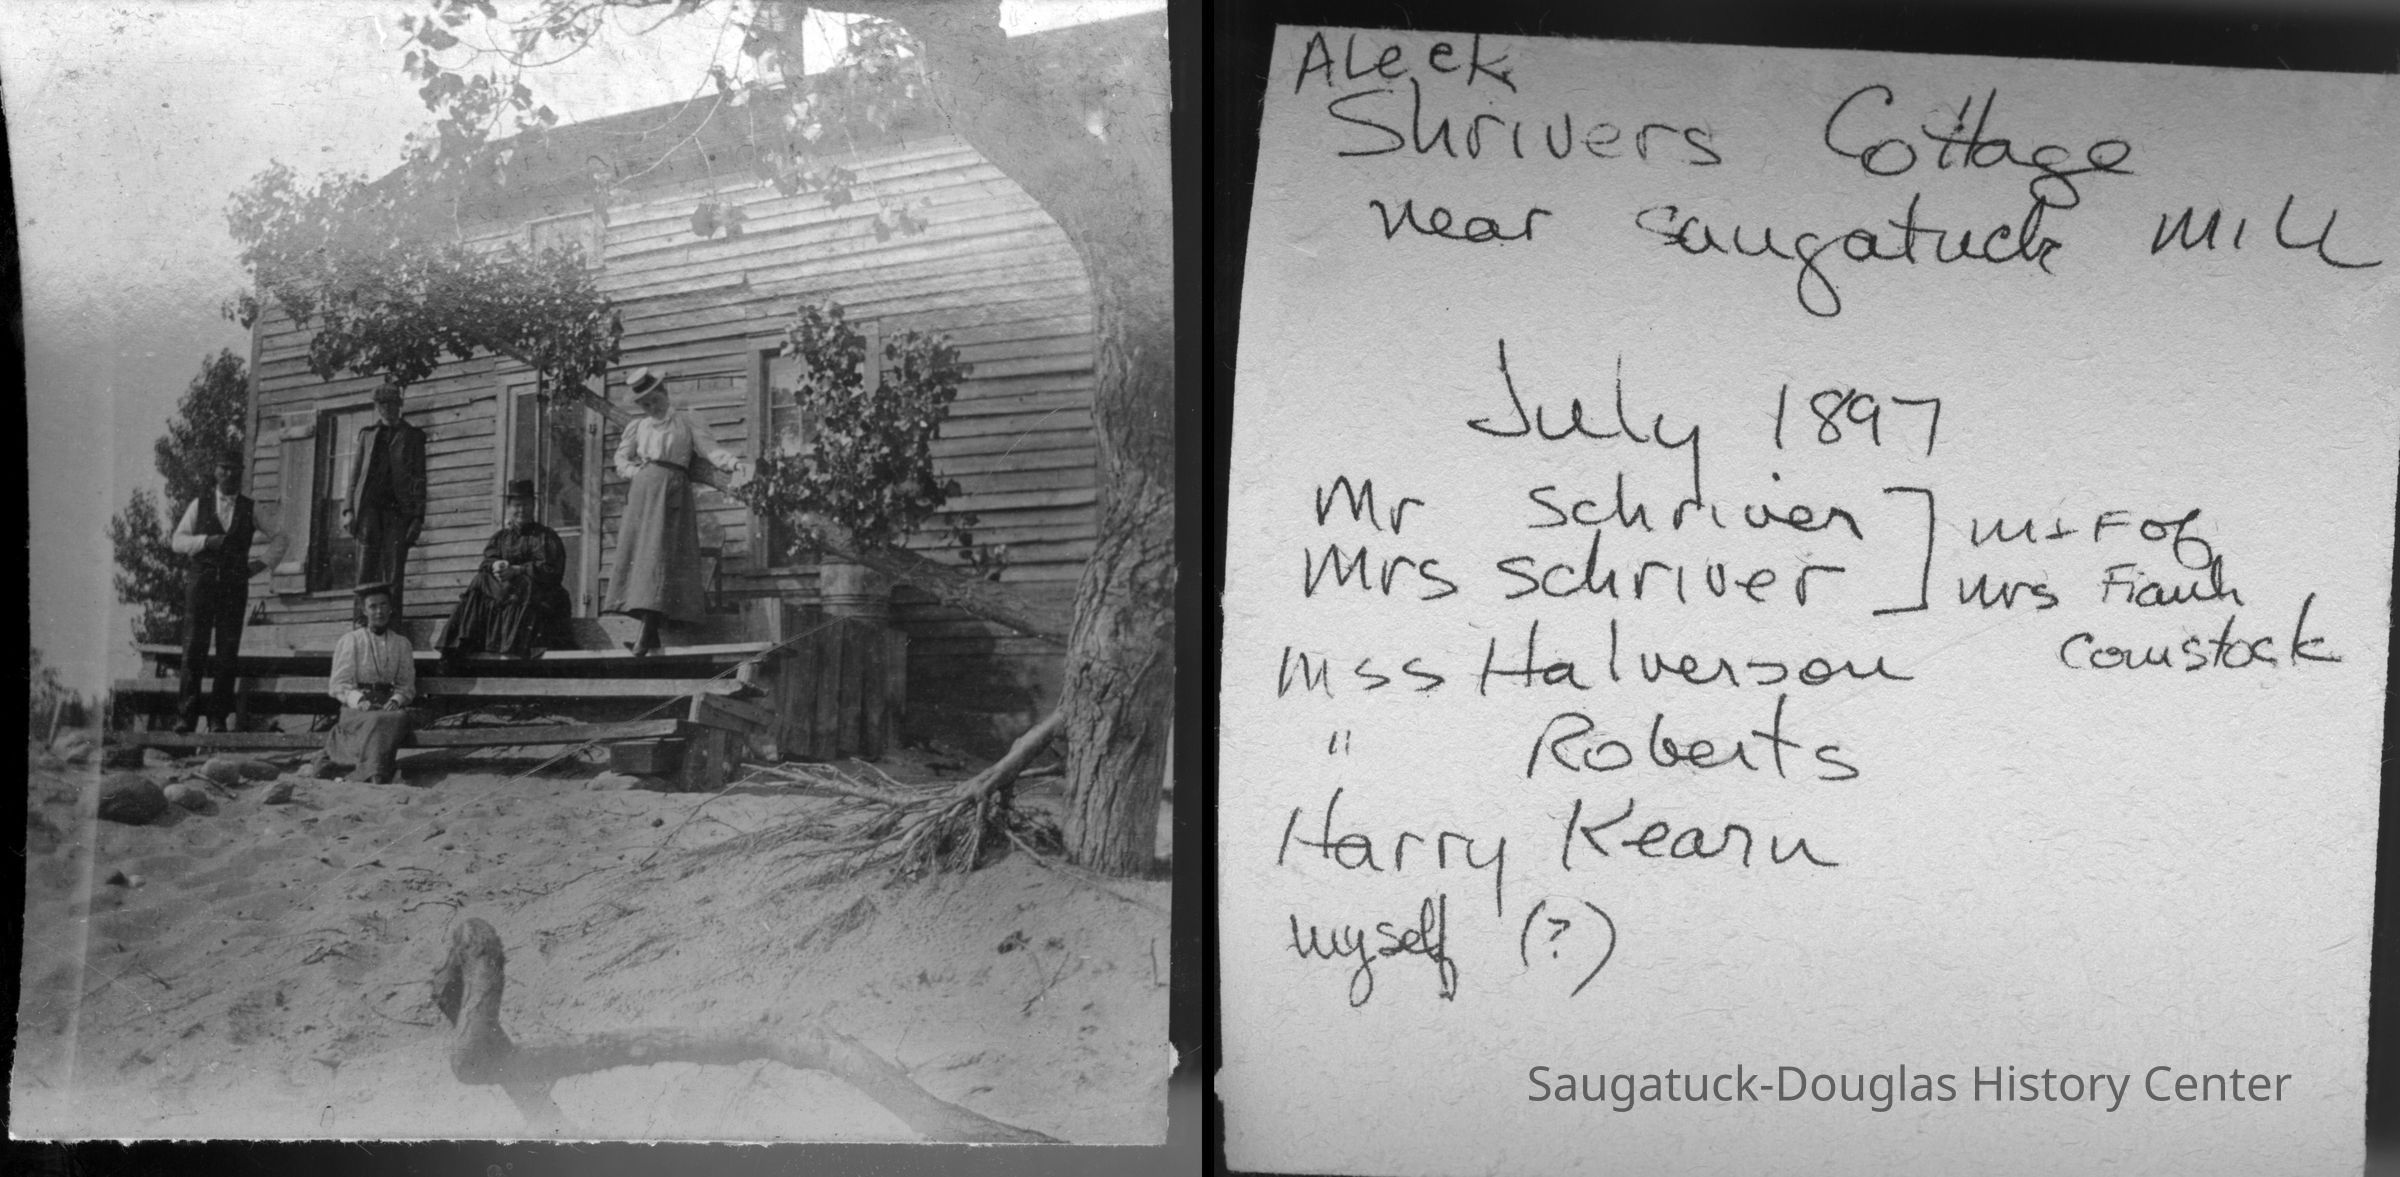 ALeck
Shrivers Cottage
near Saugatuck Mill
July 1897
Mr Schriver ] M + F of
Mrs Schriver ] Mrs Frank
Comstock
Mss Halverson
" Roberts
Harry Kearn
myself (?)
Saugatuck-Douglas History Center